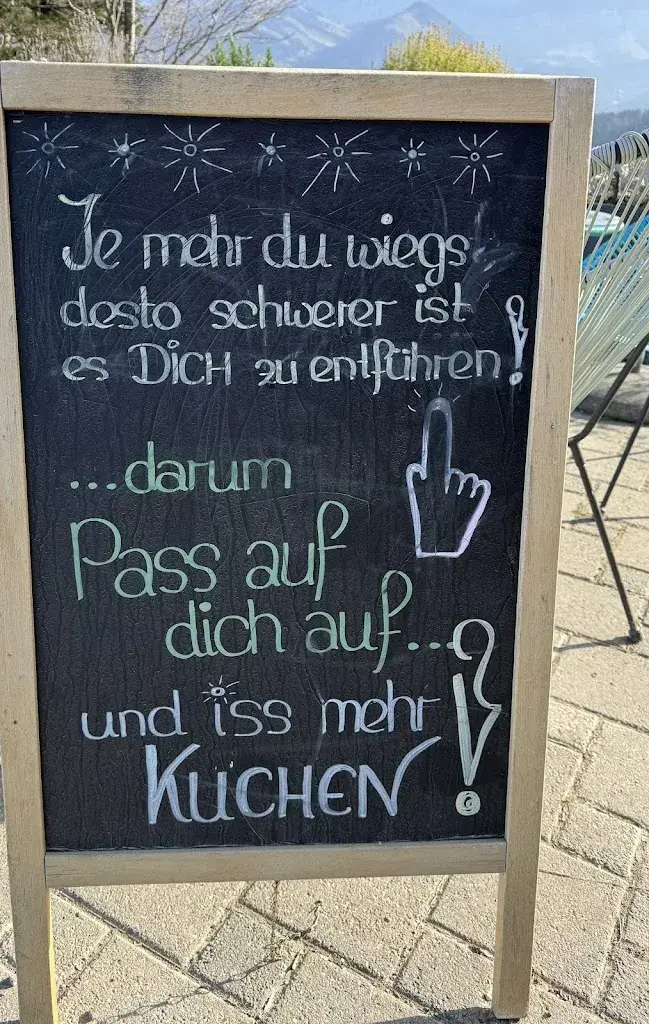 Je mehr du wiegs
desto schwerer ist
es DICH zu entführen!
...darum
Pass auf
dich auf...
und iss mehr
KUCHEN!